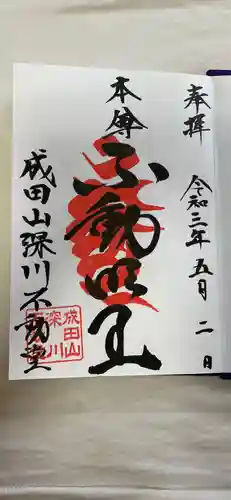 奉拝
令和三年五月二日
本尊
不動明王
成田山深川不動堂
成田山
深川